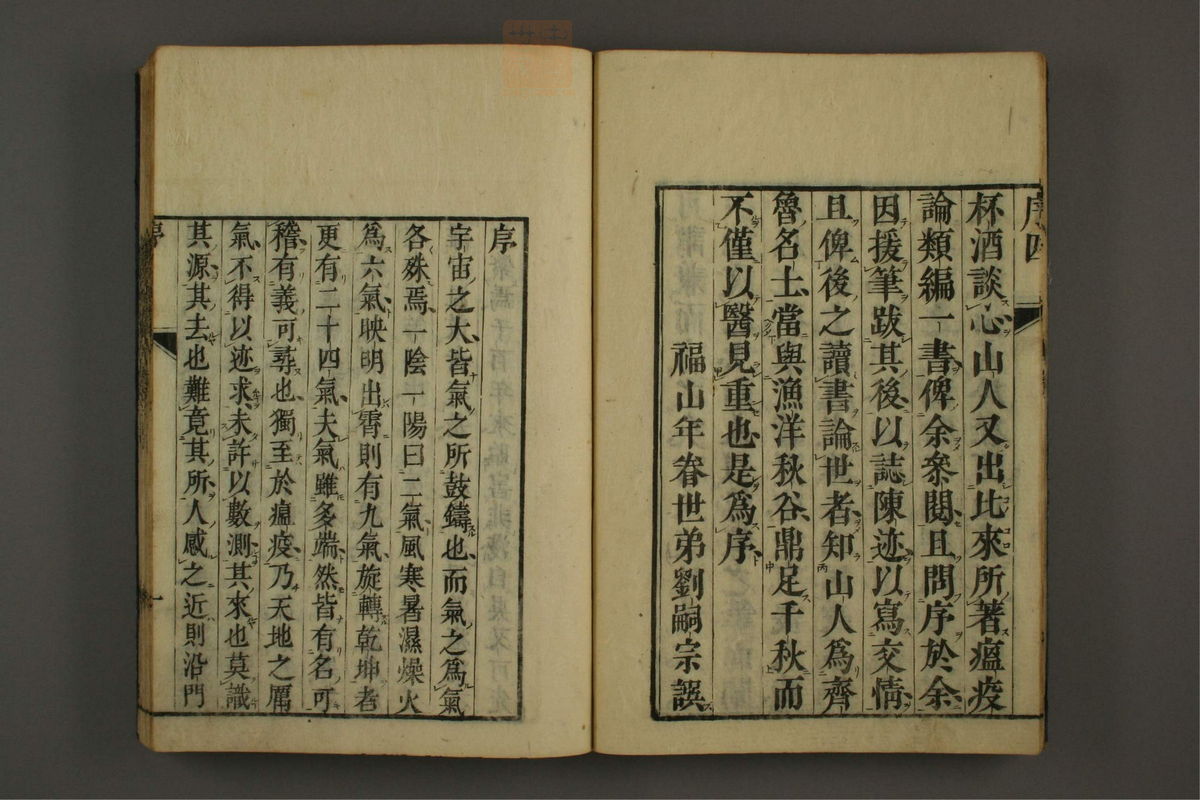 序四
杯酒談心山人又出比來所著瘟疫
論類編一書俾余叅閱且問序於余
因援筆跋其後以誌陳迹以寫交情
且俾後之讀書論世者知山人為齊
魯名士當與漁洋秋谷鼎足千秋而
不僅以醫見重也是為序
福山年眷世弟劉嗣宗譔
序
宇宙之大皆氣之所鼓鑄也而氣之為氣
各殊焉一陰一陽曰二氣風寒暑濕燥火
為六氣映明出霄則有九氣旋轉乾坤者
更有二十四氣夫氣雖多端然皆有名可
稽有義可尋也獨至於瘟疫乃天地之厲
氣不得以迹求未許以數測其來也莫識
其源其去也難竟其所人感之近則沿門
序
一